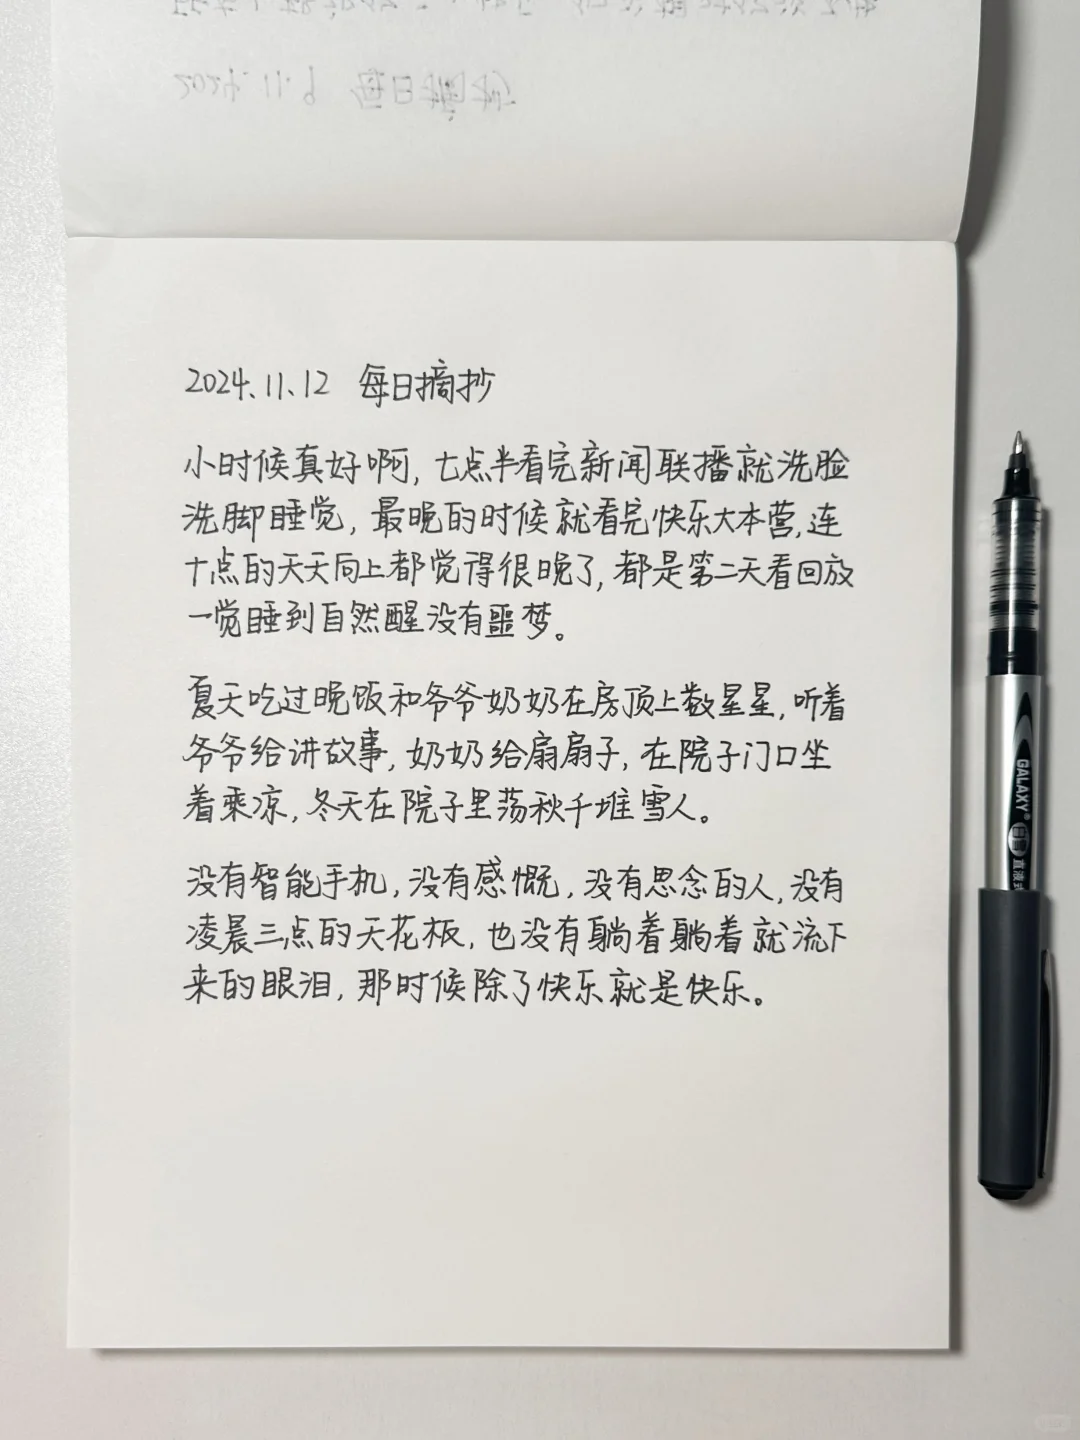 2024.11.12 每日摘抄
小时候真好啊，七点半看完新闻联播就洗脸
洗脚睡觉，最晚的时候就看完快乐大本营，连
十点的天天向上都觉得很晚了，都是第二天看回放
一觉睡到自然醒没有噩梦。
夏天吃过晚饭和爷爷奶奶在房顶上数星星，听着
爷爷给讲故事，奶奶给扇扇子，在院子门口坐
着乘凉，冬天在院子里荡秋千堆雪人。
没有智能手机，没有感慨，没有思念的人，没有
凌晨三点的天花板，也没有躺着躺着就流下
来的眼泪，那时候除了快乐就是快乐。
GALAXY®
白雪 直液式